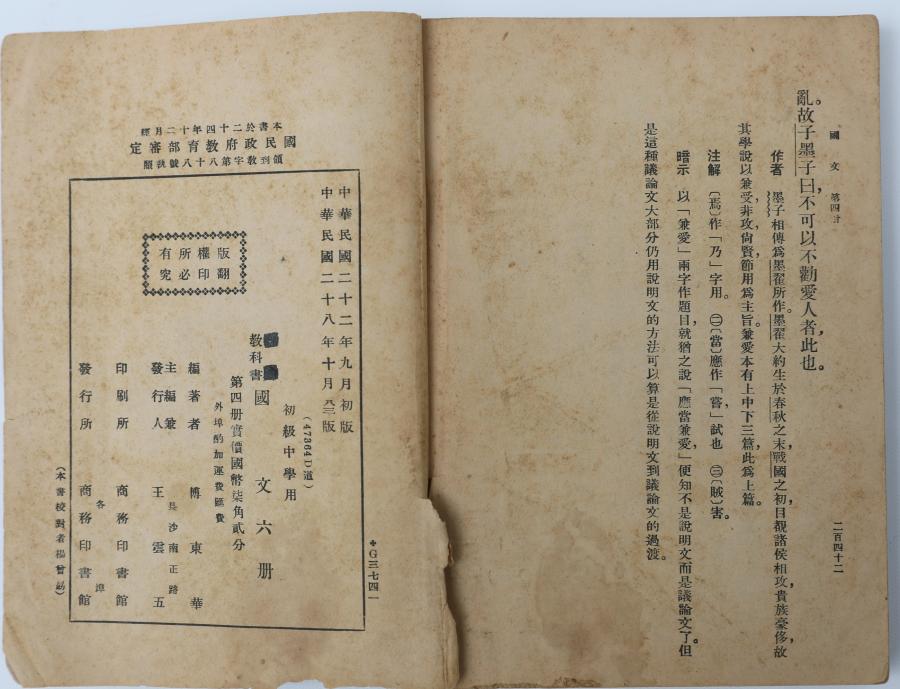 國文 第四冊
二百四十二
亂。故子墨子曰，不可以不勸愛人者，此也。
作者 墨子相傳爲墨翟所作。墨翟大約生於春秋之末，戰國之初，目覩諸侯相攻，貴族豪侈，故
其學說以兼愛，非攻，尙賢，節用爲主旨。兼愛本有上中下三篇，此爲上篇。
注解 〔焉〕作「乃」字用。 ㊁〔當〕應作「嘗，」試也 ㊂〔賊〕害。
暗示 以「兼愛」兩字作題目，就猶之說「應當兼愛，」便知不是說明文而是議論文了。但
是這種議論文大部分仍用說明文的方法，可以算是從說明文到議論文的過渡。
本書於二十四年十二月經
國民政府教育部審定
領到敎字第八十八號執照
中華民國二十二年九月初版
中華民國二十八年十月 版
版權所有
翻印必究
(47364D道)
初級中學用
教科書 國文六册
第四册實價國幣柒角貳分
外埠酌加運費匯費
編著者 傅東華
主編兼發行人 王雲五
長沙南正路
印刷所 商務印書館
發行所 商務印書館
各埠
(本書校對者楊 )
G三七四一